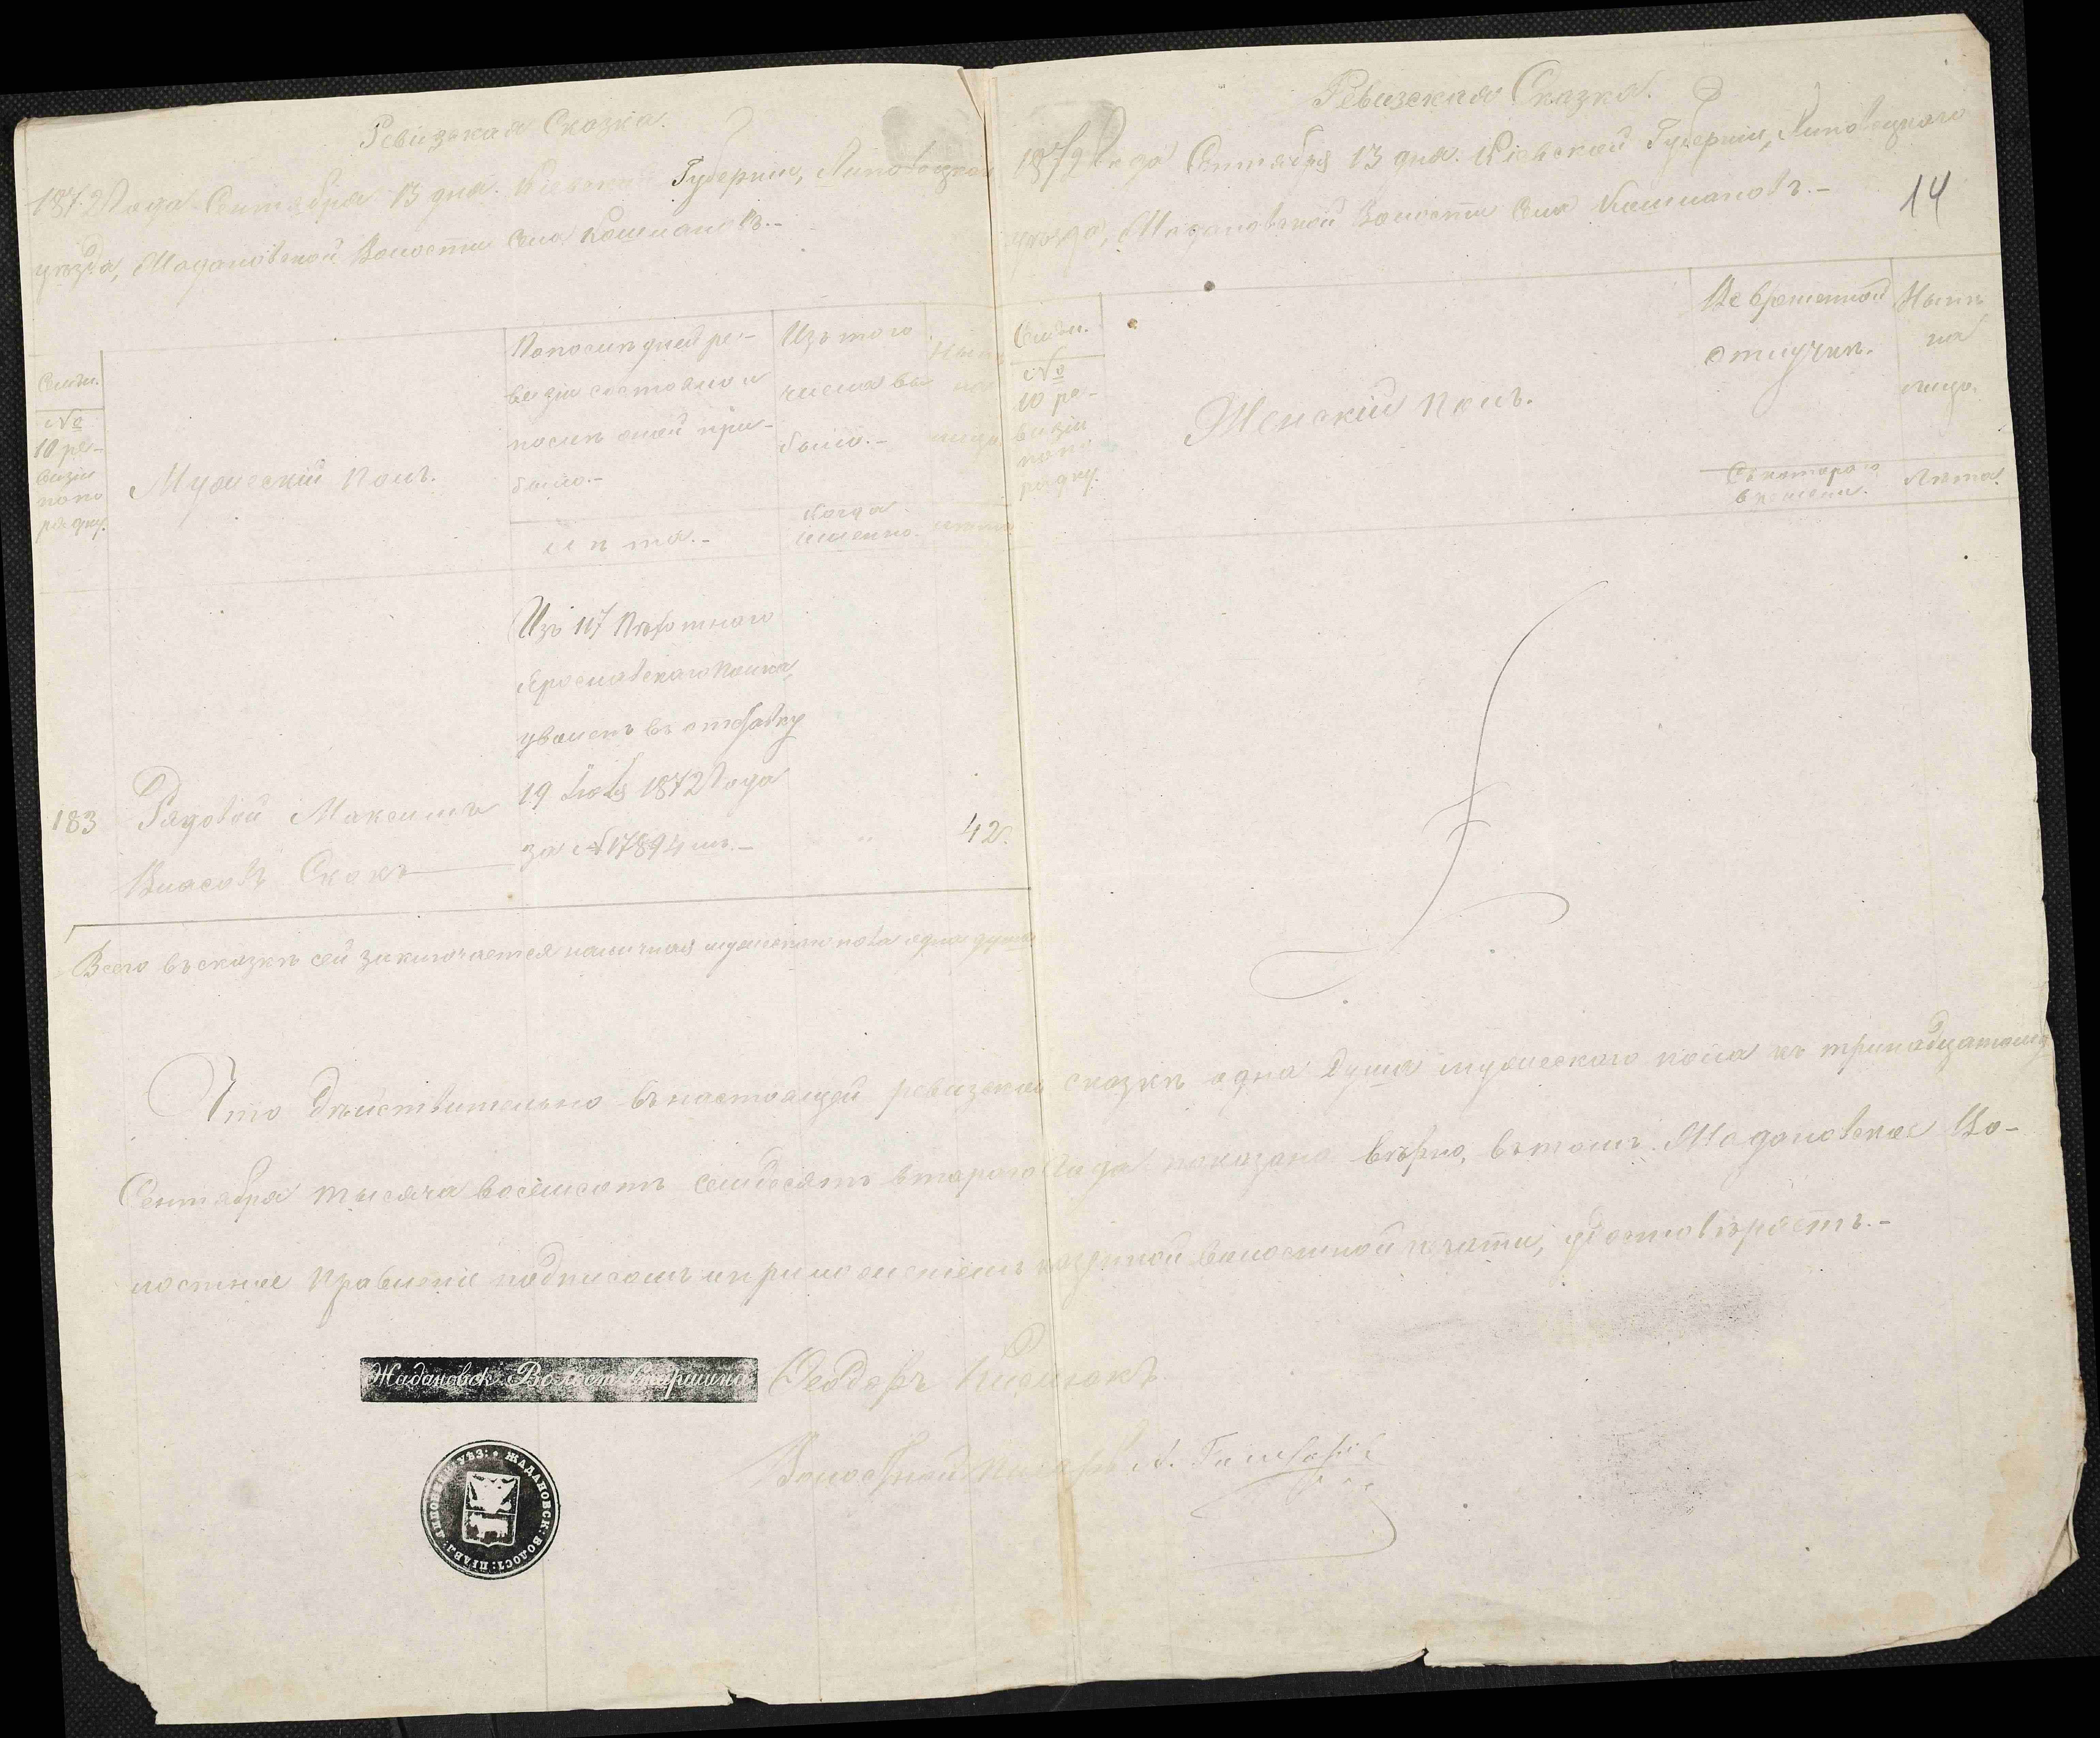 Ревизская Сказка.
1872 Года Сентября 13 дня. Киевской Губернии, Липовецкого
уезда, Жадановской Волости Села Кошланов.-
Мужеский полъ.
Семьи.
№
10 ре-
визіи
по по
рядку.
По последней ре-
визіи состояло и
после оной при-
было.-
Лета.-
Изъ того
числа вы
было.-
Когда
именно.
Ныне
на
лицо.
лета
183
Рядовой Максимъ
Власовъ Скокъ
Изъ 117 Пехотного
Ярославского Полка,
уволенъ въ отставку
19 Іюля 1872 Года
за №17894 мъ.-
"
42.
Всего въ сказке сей заключается наличная мужеского пола одна душа
Ревизская Сказка.
1872 Года Сентября 13 дня. Кіевской Губерніи, Липовецкого
уезда, Жадановской Волости Села Кошлановъ.-
14
Семьи.
№
10 ре-
визіи
по по
рядку.
Женскій полъ.
Во временной
отлучке.
Съ которого
времени.
Ныне
на
лицо.
Лета.
Что действительно въ настоящей ревизской сказке одна душа мужеского пола къ тринадцатому
Сентября тысяча восемсотъ семдесятъ второго Года показана верно, въ томъ Жадановское Во-
лостное Правленіе подписомъ и приложеніемъ казенной волостной печати, удостоверяетъ.-
Жадановск. Волост. Старшина
Феодоръ
Волостной Писарь
ЖАДАНОВСК: ВОЛОСТ: ПРАВЛ: ЛИПОВЕЦ: УѢЗ: